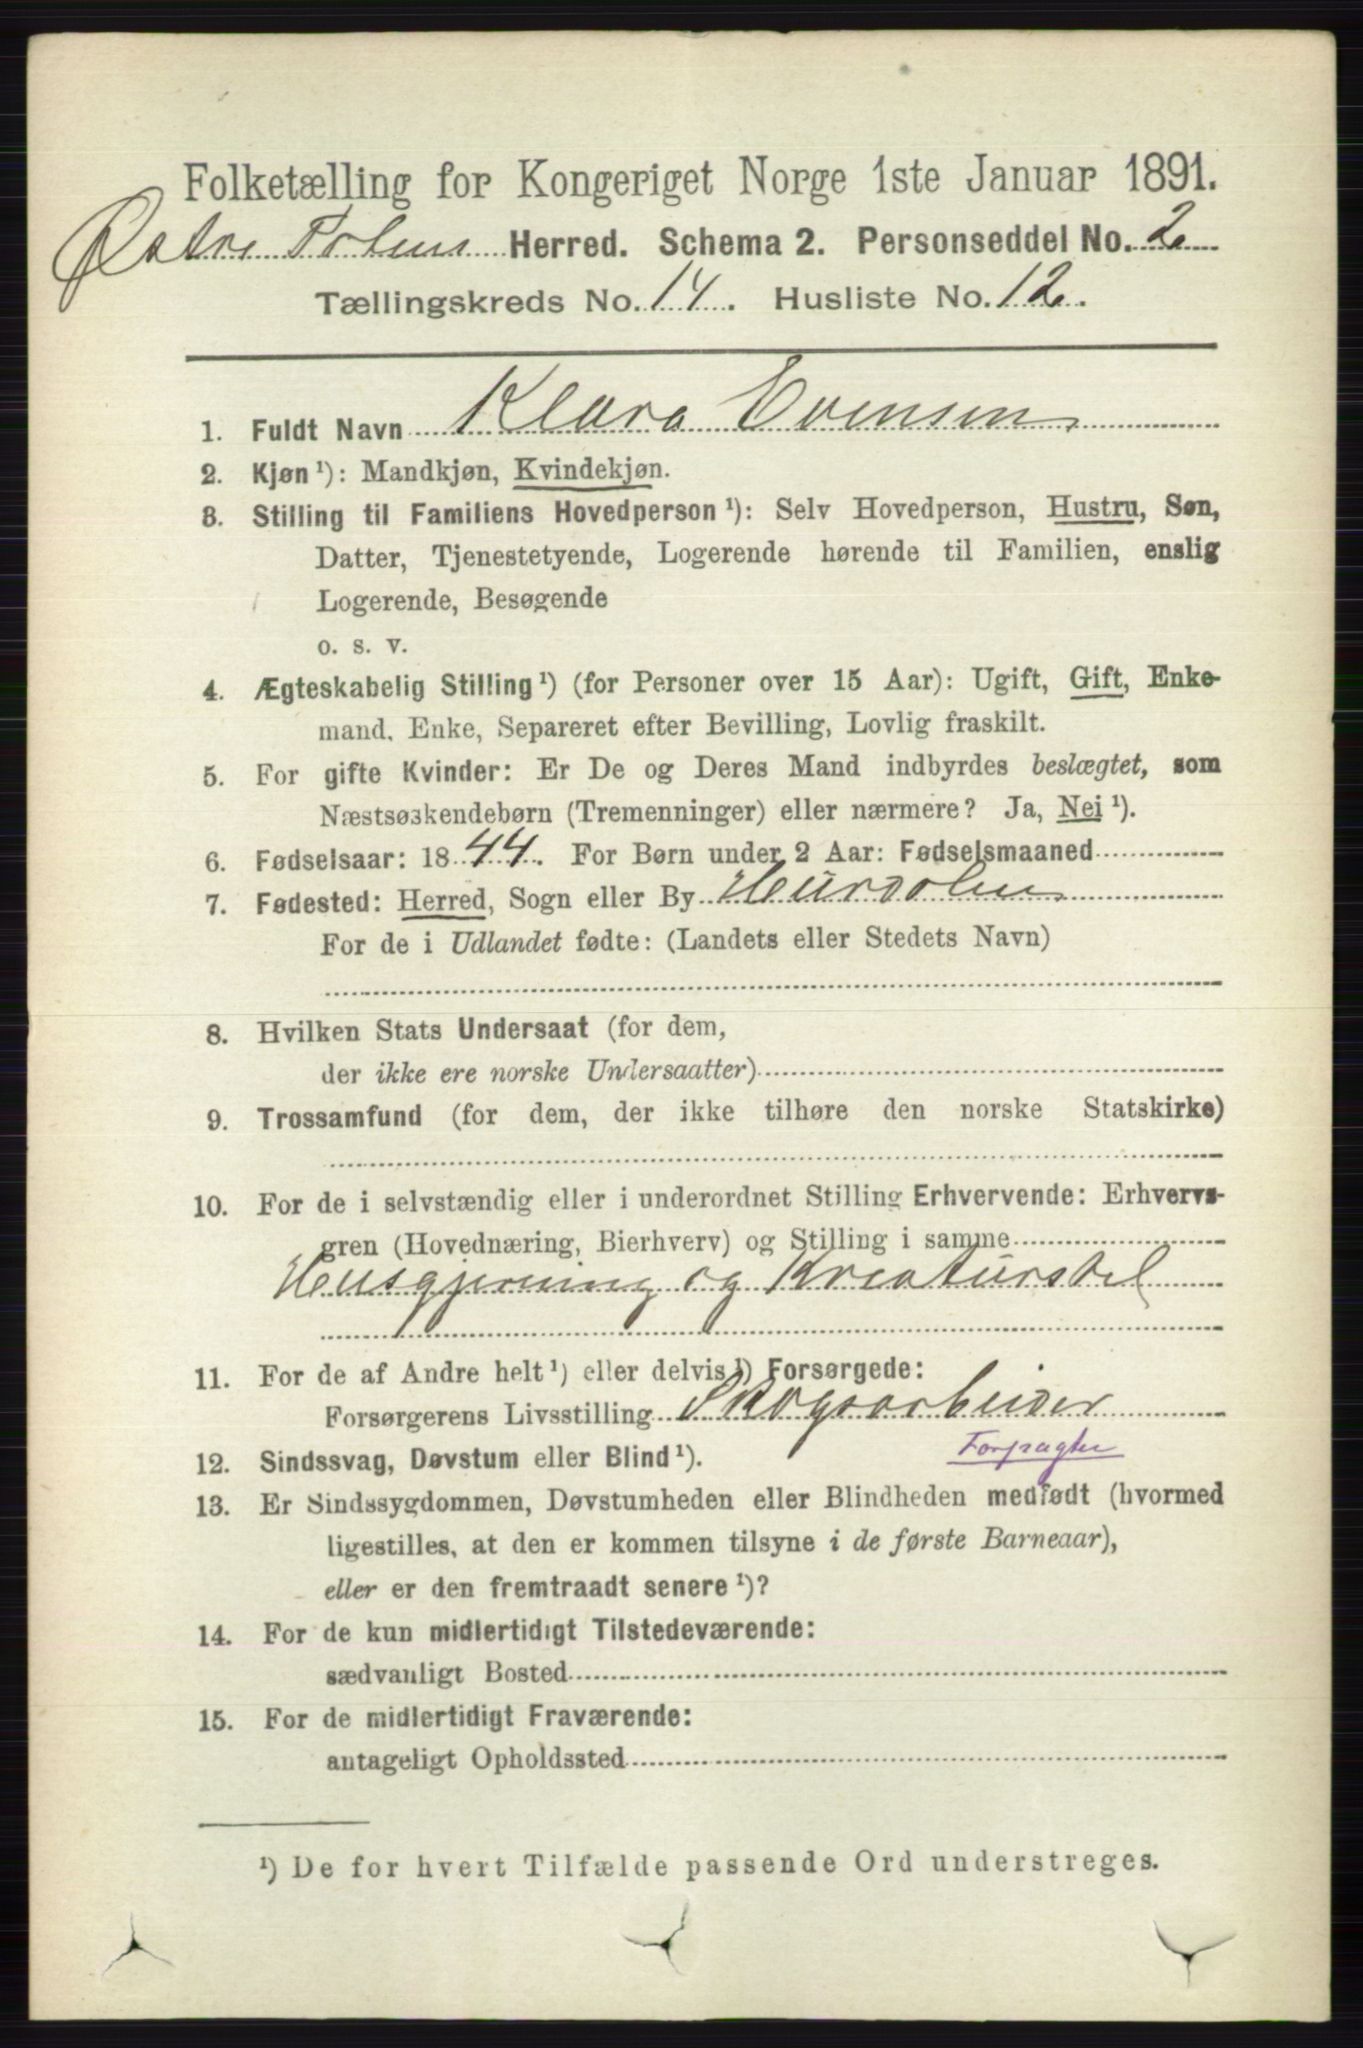 Folketælling for Kongeriget Norge 1ste Januar 1891.
Østre Toten Herred. Schema 2. Personseddel No. 2
Tællingskreds No. 14. Husliste No. 12.
1. Fuldt Navn Klara Evensen
2. Kjøn ¹): Mandkjøn, Kvindekjøn.
3. Stilling til Familiens Hovedperson ¹): Selv Hovedperson, Hustru, Søn,
Datter, Tjenestetyende, Logerende hørende til Familien, enslig
Logerende, Besøgende
o. s. v.
4. Ægteskabelig Stilling ¹) (for Personer over 15 Aar): Ugift, Gift, Enke-
mand, Enke, Separeret efter Bevilling, Lovlig fraskilt.
5. For gifte Kvinder: Er De og Deres Mand indbyrdes beslægtet, som
Næstsøskendebørn (Tremenninger) eller nærmere? Ja, Nei ¹).
6. Fødselsaar: 1844. For Børn under 2 Aar: Fødselsmaaned
7. Fødested: Herred, Sogn eller By Hurdalen
For de i Udlandet fødte: (Landets eller Stedets Navn)
8. Hvilken Stats Undersaat (for dem,
der ikke ere norske Undersaatter)
9. Trossamfund (for dem, der ikke tilhøre den norske Statskirke)
10. For de i selvstændig eller i underordnet Stilling Erhvervende: Erhvervs-
gren (Hovednæring, Bierhverv) og Stilling i samme
Husgjerning og Kreaturstel
11. For de af Andre helt ¹) eller delvis ¹) Forsørgede:
Forsørgerens Livsstilling Skogsarbeider
Forpagter
12. Sindssvag, Døvstum eller Blind ¹).
13. Er Sindssygdommen, Døvstumheden eller Blindheden medfødt (hvormed
ligestilles, at den er kommen tilsyne i de første Barneaar),
eller er den fremtraadt senere ¹)?
14. For de kun midlertidigt Tilstedeværende:
sædvanligt Bosted
15. For de midlertidigt Fraværende:
antageligt Opholdssted
¹) De for hvert Tilfælde passende Ord understreges.